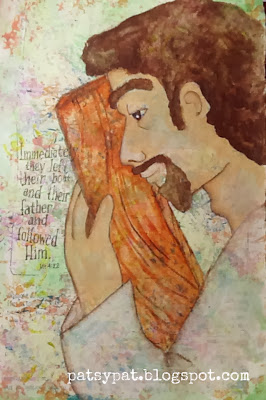 Immediately
they left
their boat
and their
father
and
followed
Him.
patsypat.blogspot.com